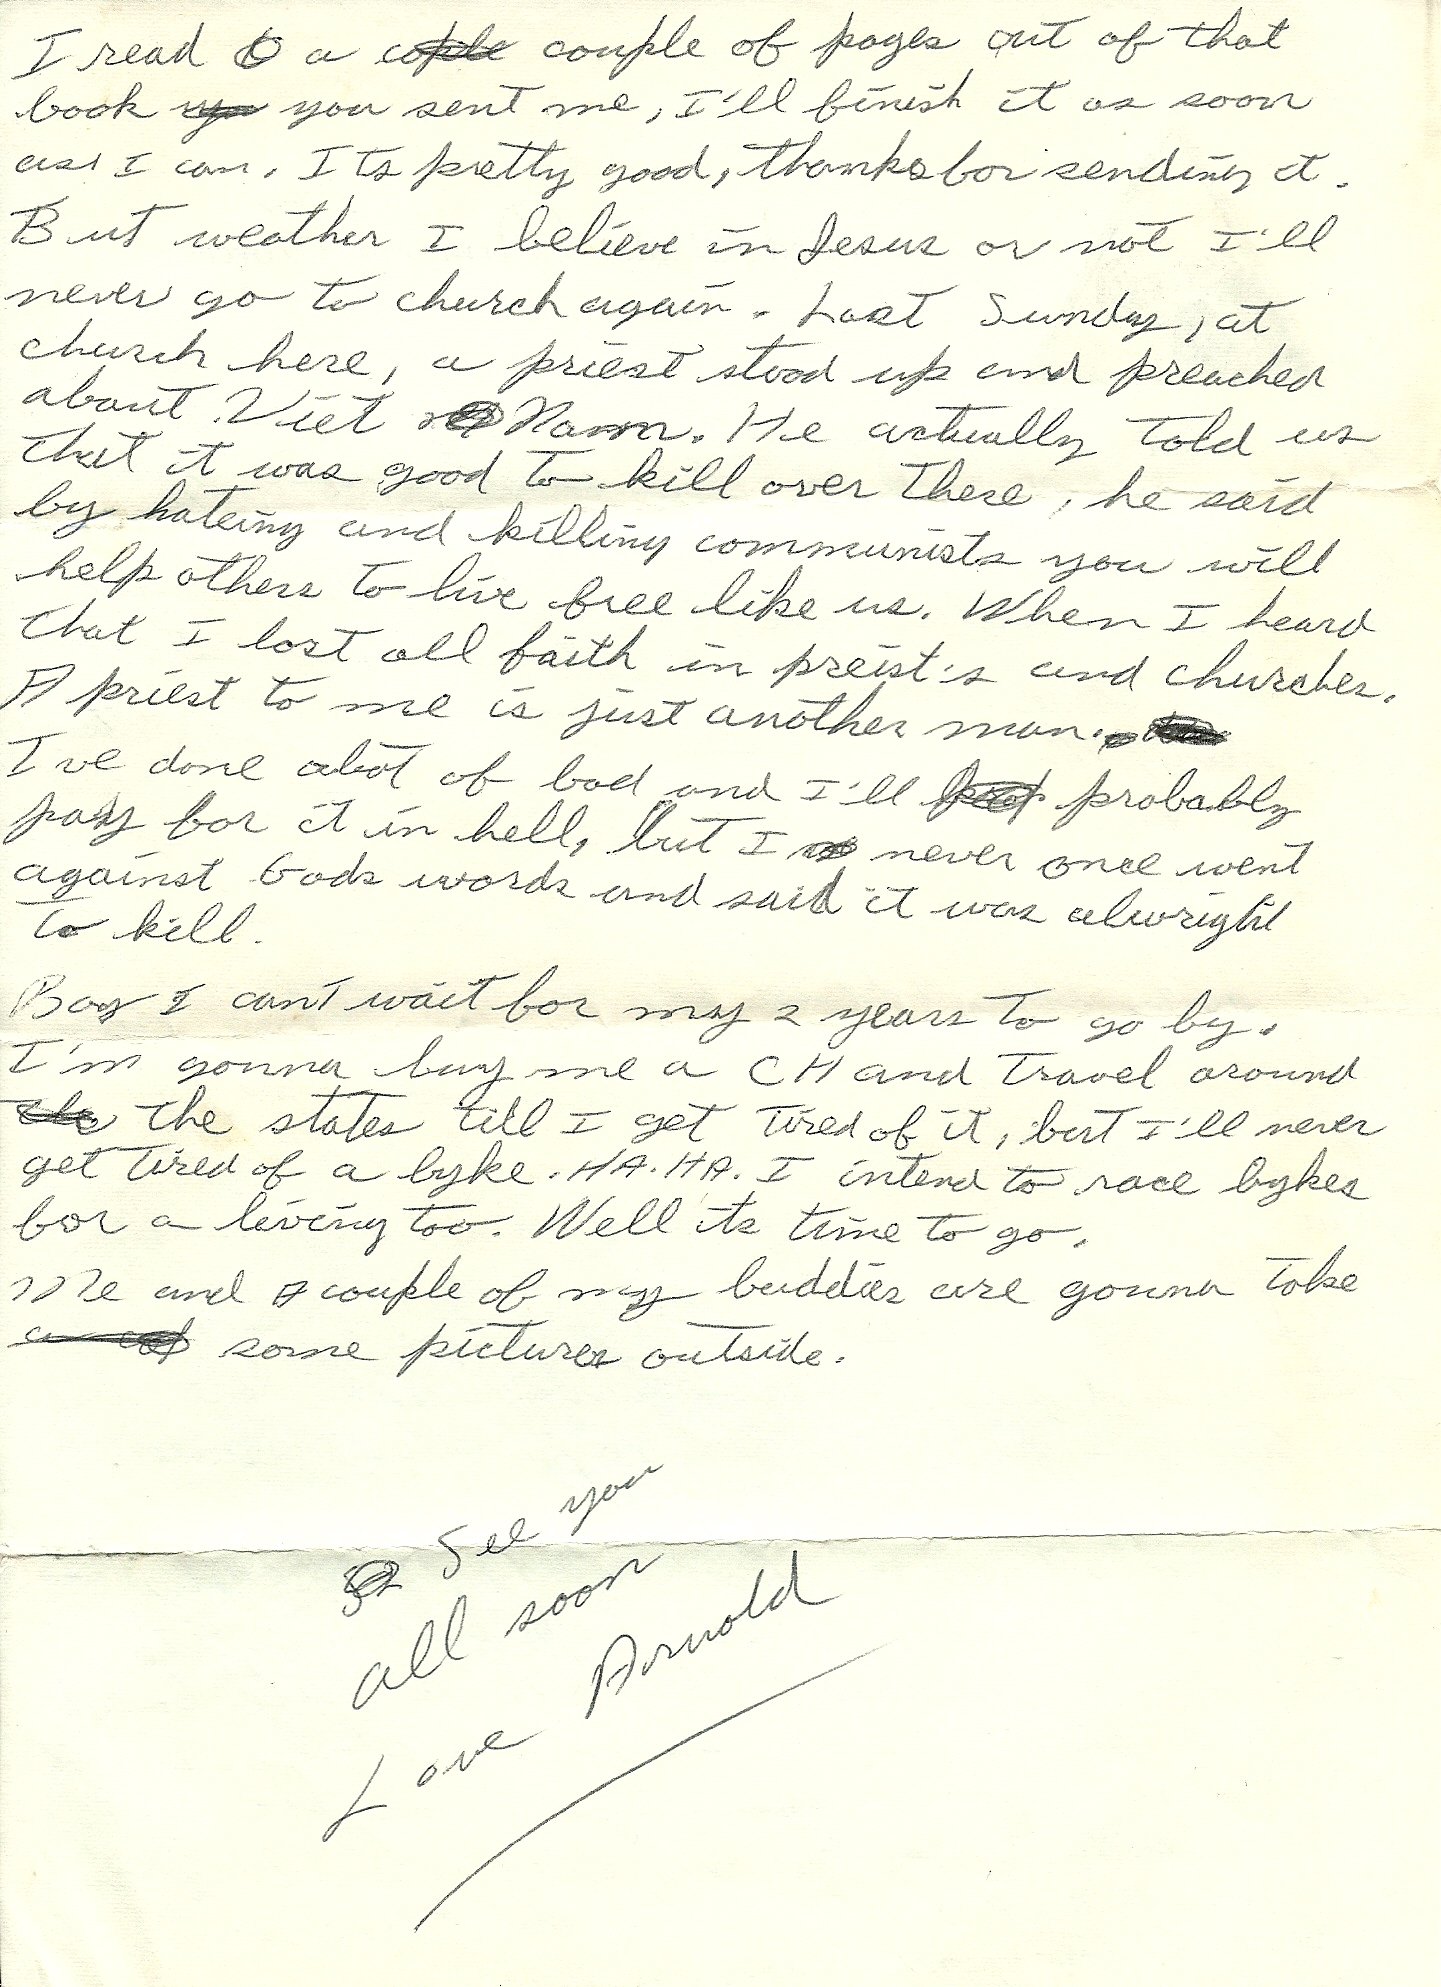 I read a couple of pages out of that
book you sent me, I'll finish it as soon
as I can. Its pretty good, thanks for sending it.
But weather I believe in Jesus or not I'll
never go to church again. Last Sunday, at
church here, a priest stood up and preached
about Viet Nam. He actually told us
that it was good to kill over there, he said
by hateing and killing communists you will
help others to live free like us. When I heard
that I lost all faith in preist's and churches.
A priest to me is just another man.
I've done alot of bad and I'll probably
pay for it in hell, but I never once went
against Gods words and said it was alwright
to kill.
Boy I can't wait for my 2 years to go by.
I'm gonna buy me a CH and travel around
the states till I get tired of it, but I'll never
get tired of a byke. HA. HA. I intend to race bykes
for a living too. Well its time to go.
Me and a couple of my buddies are gonna take
some pictures outside.
See you
all soon
Love Arnold